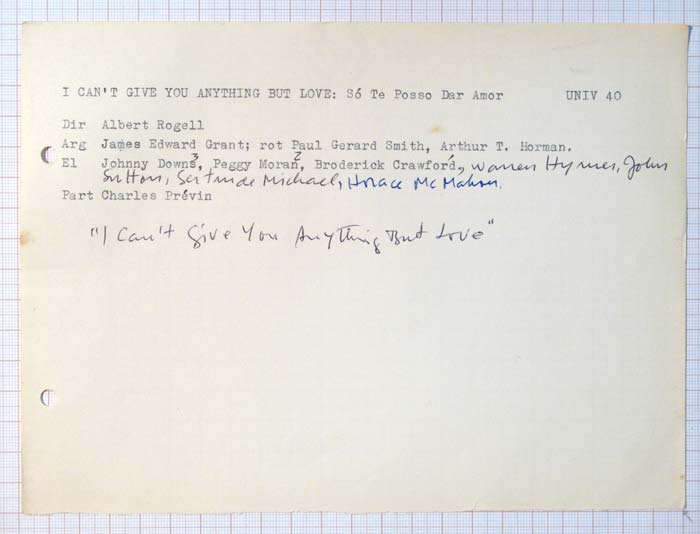 I CAN'T GIVE YOU ANYTHING BUT LOVE: Só Te Posso Dar Amor UNIV 40
Dir Albert Rogell
Arg James Edward Grant; rot Paul Gerard Smith, Arthur T. Horman.
El Johnny Downs³, Peggy Moran², Broderick Crawford¹, Warren Hymer, John
Sutton, Gertrude Michael, Horace McMahon.
Part Charles Prévin
"I Can't Give You Anything But Love"